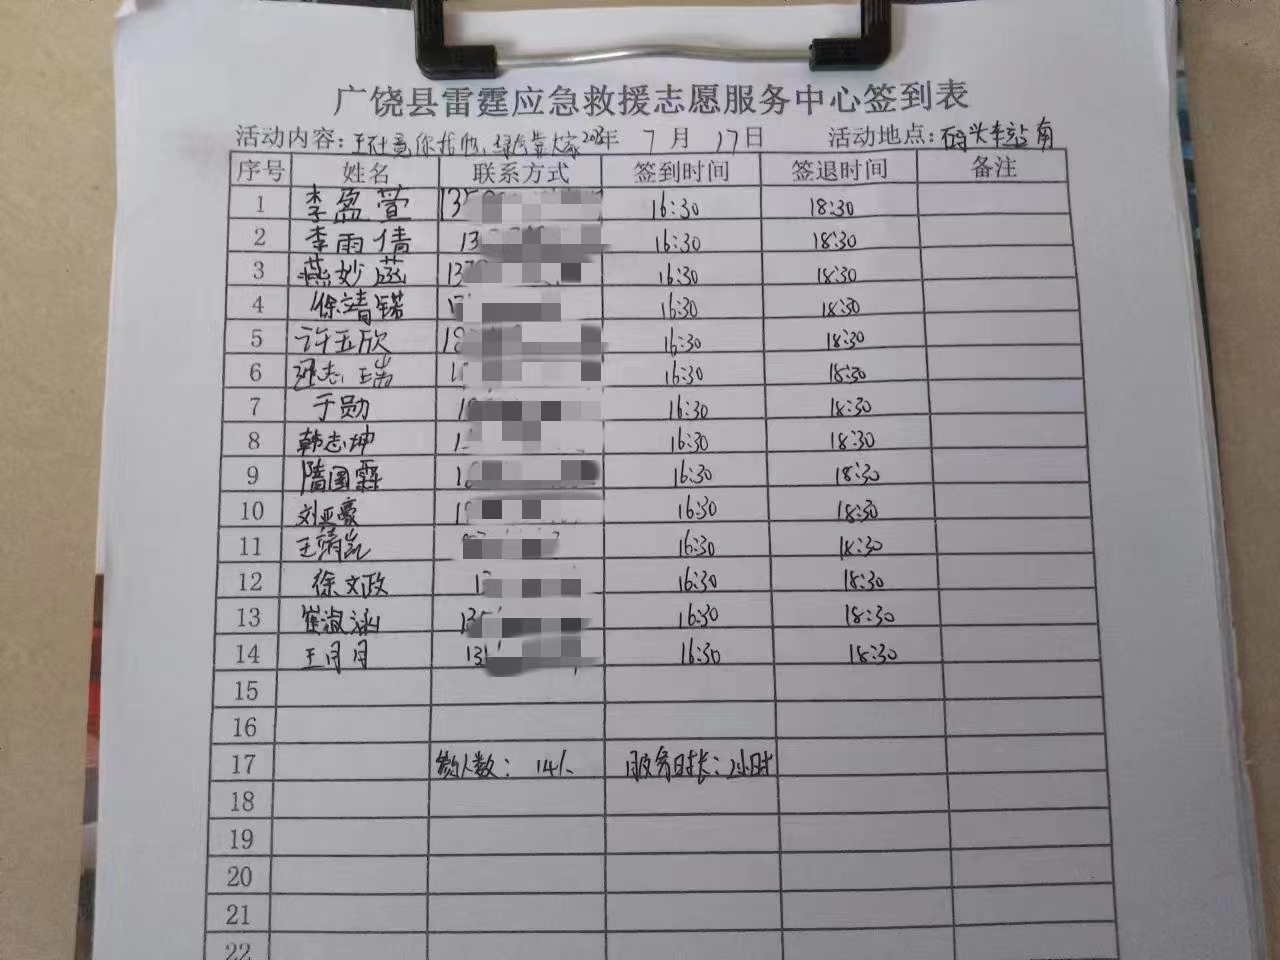 广饶县雷霆应急救援志愿服务中心签到表
活动内容: 年 7 月 17日 活动地点: 码头车站南
序号 姓名 联系方式 签到时间 签退时间 备注
1 李盈萱 135 16:30 18:30
2 李雨倩 13 16:30 18:30
3 燕妙菡 13 16:30 18:30
4 徐靖锘 16:30 18:30
5 许玉欣 16:30 18:30
6 志瑞 16:30 18:30
7 于勋 16:30 18:30
8 韩志坤 16:30 18:30
9 隋国霖 16:30 18:30
10 刘亚豪 16:30 18:30
11 王靖凯 16:30 18:30
12 徐文政 16:30 18:30
13 崔淑涵 135 16:30 18:30
14 王月月 16:30 18:30
15
16
17 人数: 14人 服务时长: 2小时
18
19
20
21
22